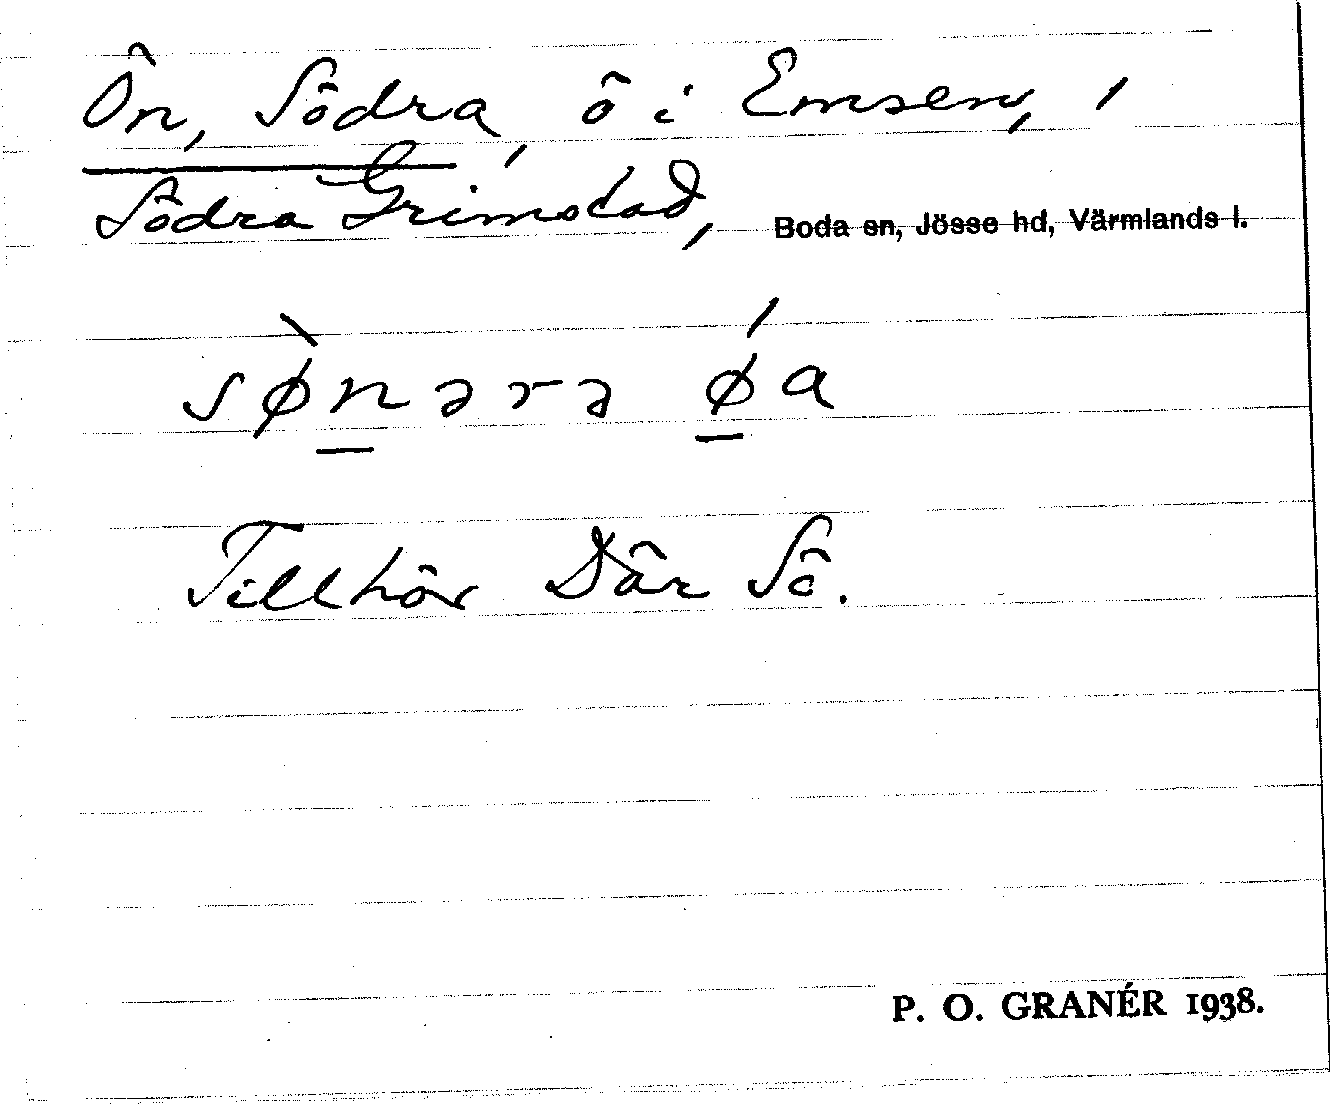 Ön, Södra, ö i Emsen,
Södra Grimstad, Boda sn, Jösse hd, Värmlands l.
sø̀nərə ǿa
Tillhör Där Sö.
P. O. GRANÉR 1938.